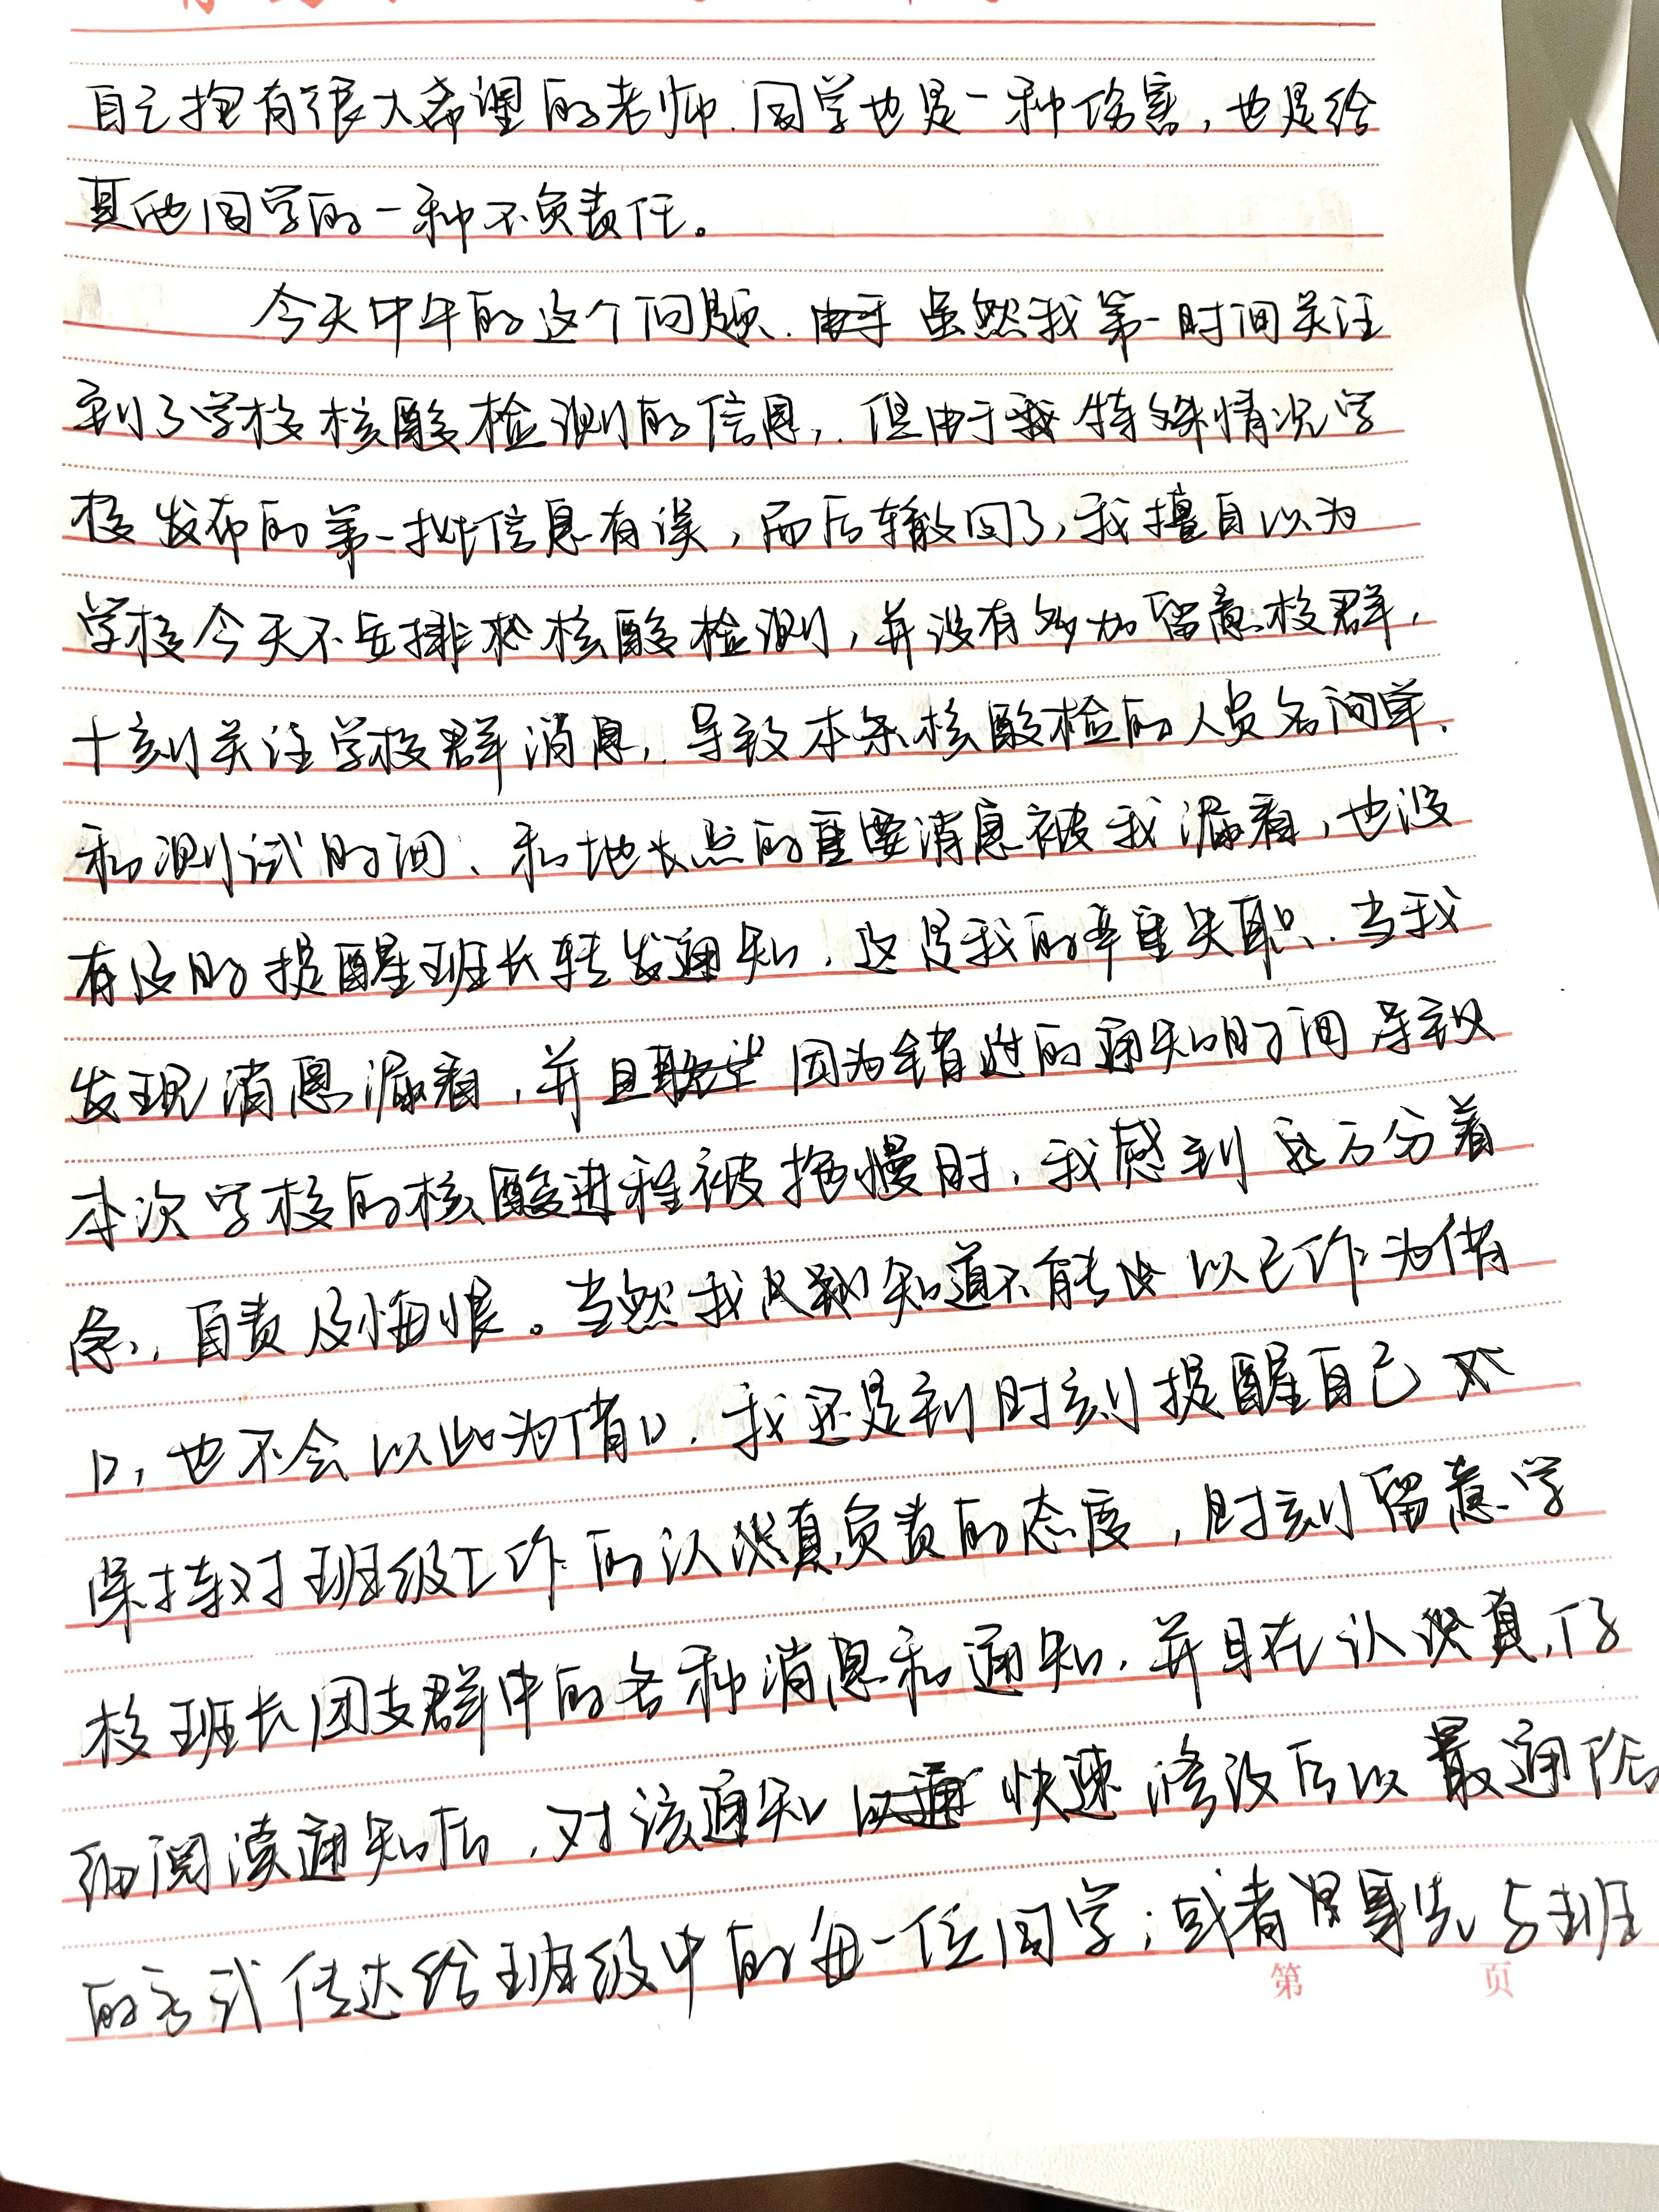 自己抱有很大希望的老师、同学也是一种伤害,也是给
其他同学的一种不负责任。
今天中午的这个问题、由于 虽然我第一时间关注
到了学校核酸检测的信息,但由于我特殊情况学
校发布的第一批信息有误,而后撤回了,我擅自以为
学校今天不安排核酸检测,并没有多加留意校群,
时刻关注学校群消息,导致本条核酸检的人员名单、
和测试时间、和地点的重要消息被我漏看,也没
有及时提醒班长转发通知,这是我的严重失职。当我
发现消息漏看,并且 因为错过的通知时间导致
本次学校的核酸进程被拖慢时,我感到万分着
急,自责及悔恨。当然我深刻知道不能以己作为借
口,也不会以此为借口,我还是到时刻提醒自己
保持对班级工作的认真负责的态度,时刻留意学
校班长团支群中的各种消息和通知,并且在认真,仔
细阅读通知后,对该通知以通 快速修改后以最通俗
的方式传达给班级中的每一位同学;或者 率先与班
第 页